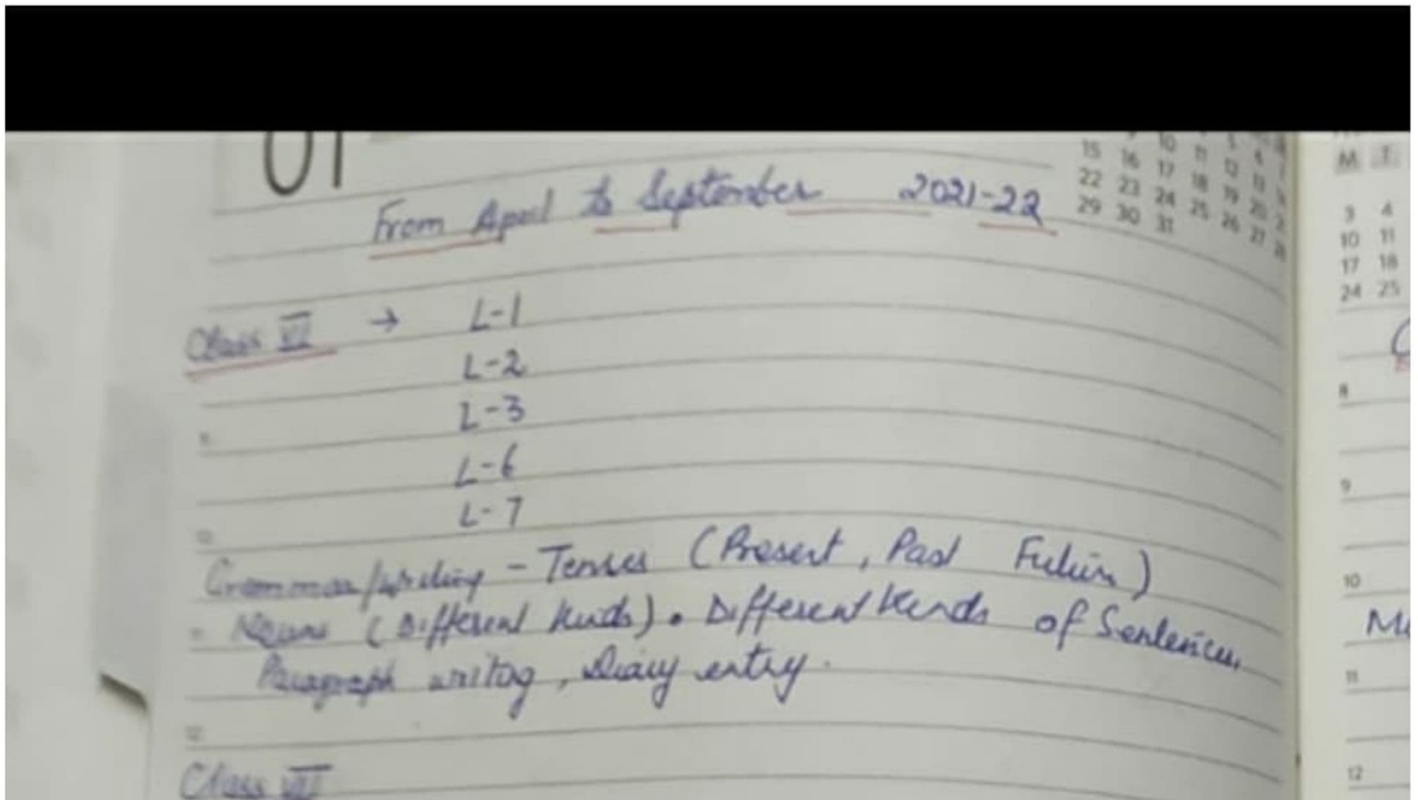 01
9 10 11
15 16 17 18 19 20 21
22 23 24 25 26 27 28
29 30 31
M T
3 4
10 11
17 18
24 25
From April to September 2021-22
Class VI → L-1
L-2
L-3
L-6
L-7
Grammar/writing - Tenses (Present, Past Future)
Nouns (Different kinds). Different kinds of Sentences,
Paragraph writing, Diary entry.
Class VII
8
9
10
11
12